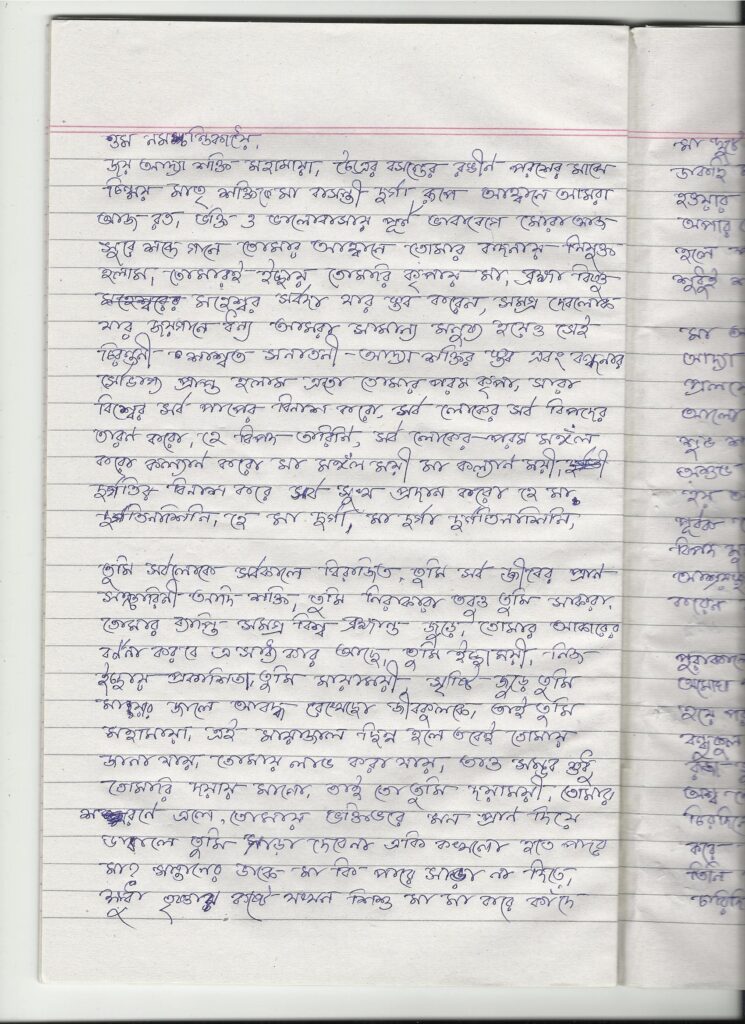 ওম নমশ্চন্ডিকায়ৈ,
জয় আদ্যা শক্তি মহামায়া, চৈত্রের বসন্তের রঙ্গীন পরশের মাঝে
চিন্ময় মাতৃ শক্তিকে মা বাসন্তী দুর্গা রূপে আহ্বানে আমরা
আজ রত, ভক্তি ও ভালোবাসায় পূর্ন ভাবাবেগে মোরা আজ
সুরে শব্দে গানে তোমার আহ্বানে তোমার বন্দনায় নিযুক্ত
হলাম, তোমারই ইচ্ছায় তোমারি কৃপায় মা, ব্রহ্মা বিষ্ণু
মহেশ্বর সর্বদা যার স্তব করেন, সমগ্র দেবলোক
যার জয়গানে ধন্য আমরা সামান্য মনুষ্য হয়েও সেই
চিরন্তনী শাশ্বত সনাতনী আদ্যা শক্তির স্তব এবং বন্দনার
সৌভাগ্য প্রাপ্ত হলাম এতো তোমার পরম কৃপা, সারা
বিশ্বের সর্ব পাপের বিনাশ করো, সর্ব লোকের সর্ব বিপদের
তারন করো, হে বিপদ তারিনি, সর্ব লোকের পরম মঙ্গল
করো কল্যান করো মা মঙ্গল ময়ী মা কল্যান ময়ী,
দুর্গতির বিনাশ করে সর্ব সুখ প্রদান করো হে মা
দুর্গতিনাশিনি, হে মা দুর্গা, মা দুর্গা দুর্গতিনাশিনি,
তুমি সর্বলোকে সর্বকালে বিরাজিত, তুমি সর্ব জীবের প্রান
সঞ্চারিনী আদি শক্তি, তুমি নিরাকারা তবুও তুমি সাকারা,
তোমার ব্যাপ্তি সমগ্র বিশ্ব ব্রহ্মান্ড জুড়ে, তোমার আকারের
বর্ননা করবে এ সাধ্য কার আছে, তুমি ইচ্ছাময়ী, নিজ
ইচ্ছায় প্রকাশিতা, তুমি মায়াময়ী সৃষ্টি জুড়ে তুমি
মায়ার জালে আবদ্ধ রেখেছো জীবকুলকে, তাই তুমি
মহামায়া, এই মায়াজাল ছিন্ন হলে তবেই তোমায়
জানা যায়, তোমায় লাভ করা যায়, তাও সম্ভব শুধু
তোমারি দয়ায় মাগো, তাই তো তুমি দয়াময়ী, তোমার
শরণে এলে, তোমায় ভক্তিভরে মন প্রান দিয়ে
ডাকলে তুমি সাড়া দেবেনা একি কখনো হতে পারে
মা? সন্তানের ডাকে মা কি পারে সাড়া না দিতে,
ক্ষুধা তৃষ্ণায় কষ্টে যখন শিশু মা মা করে কাঁদে